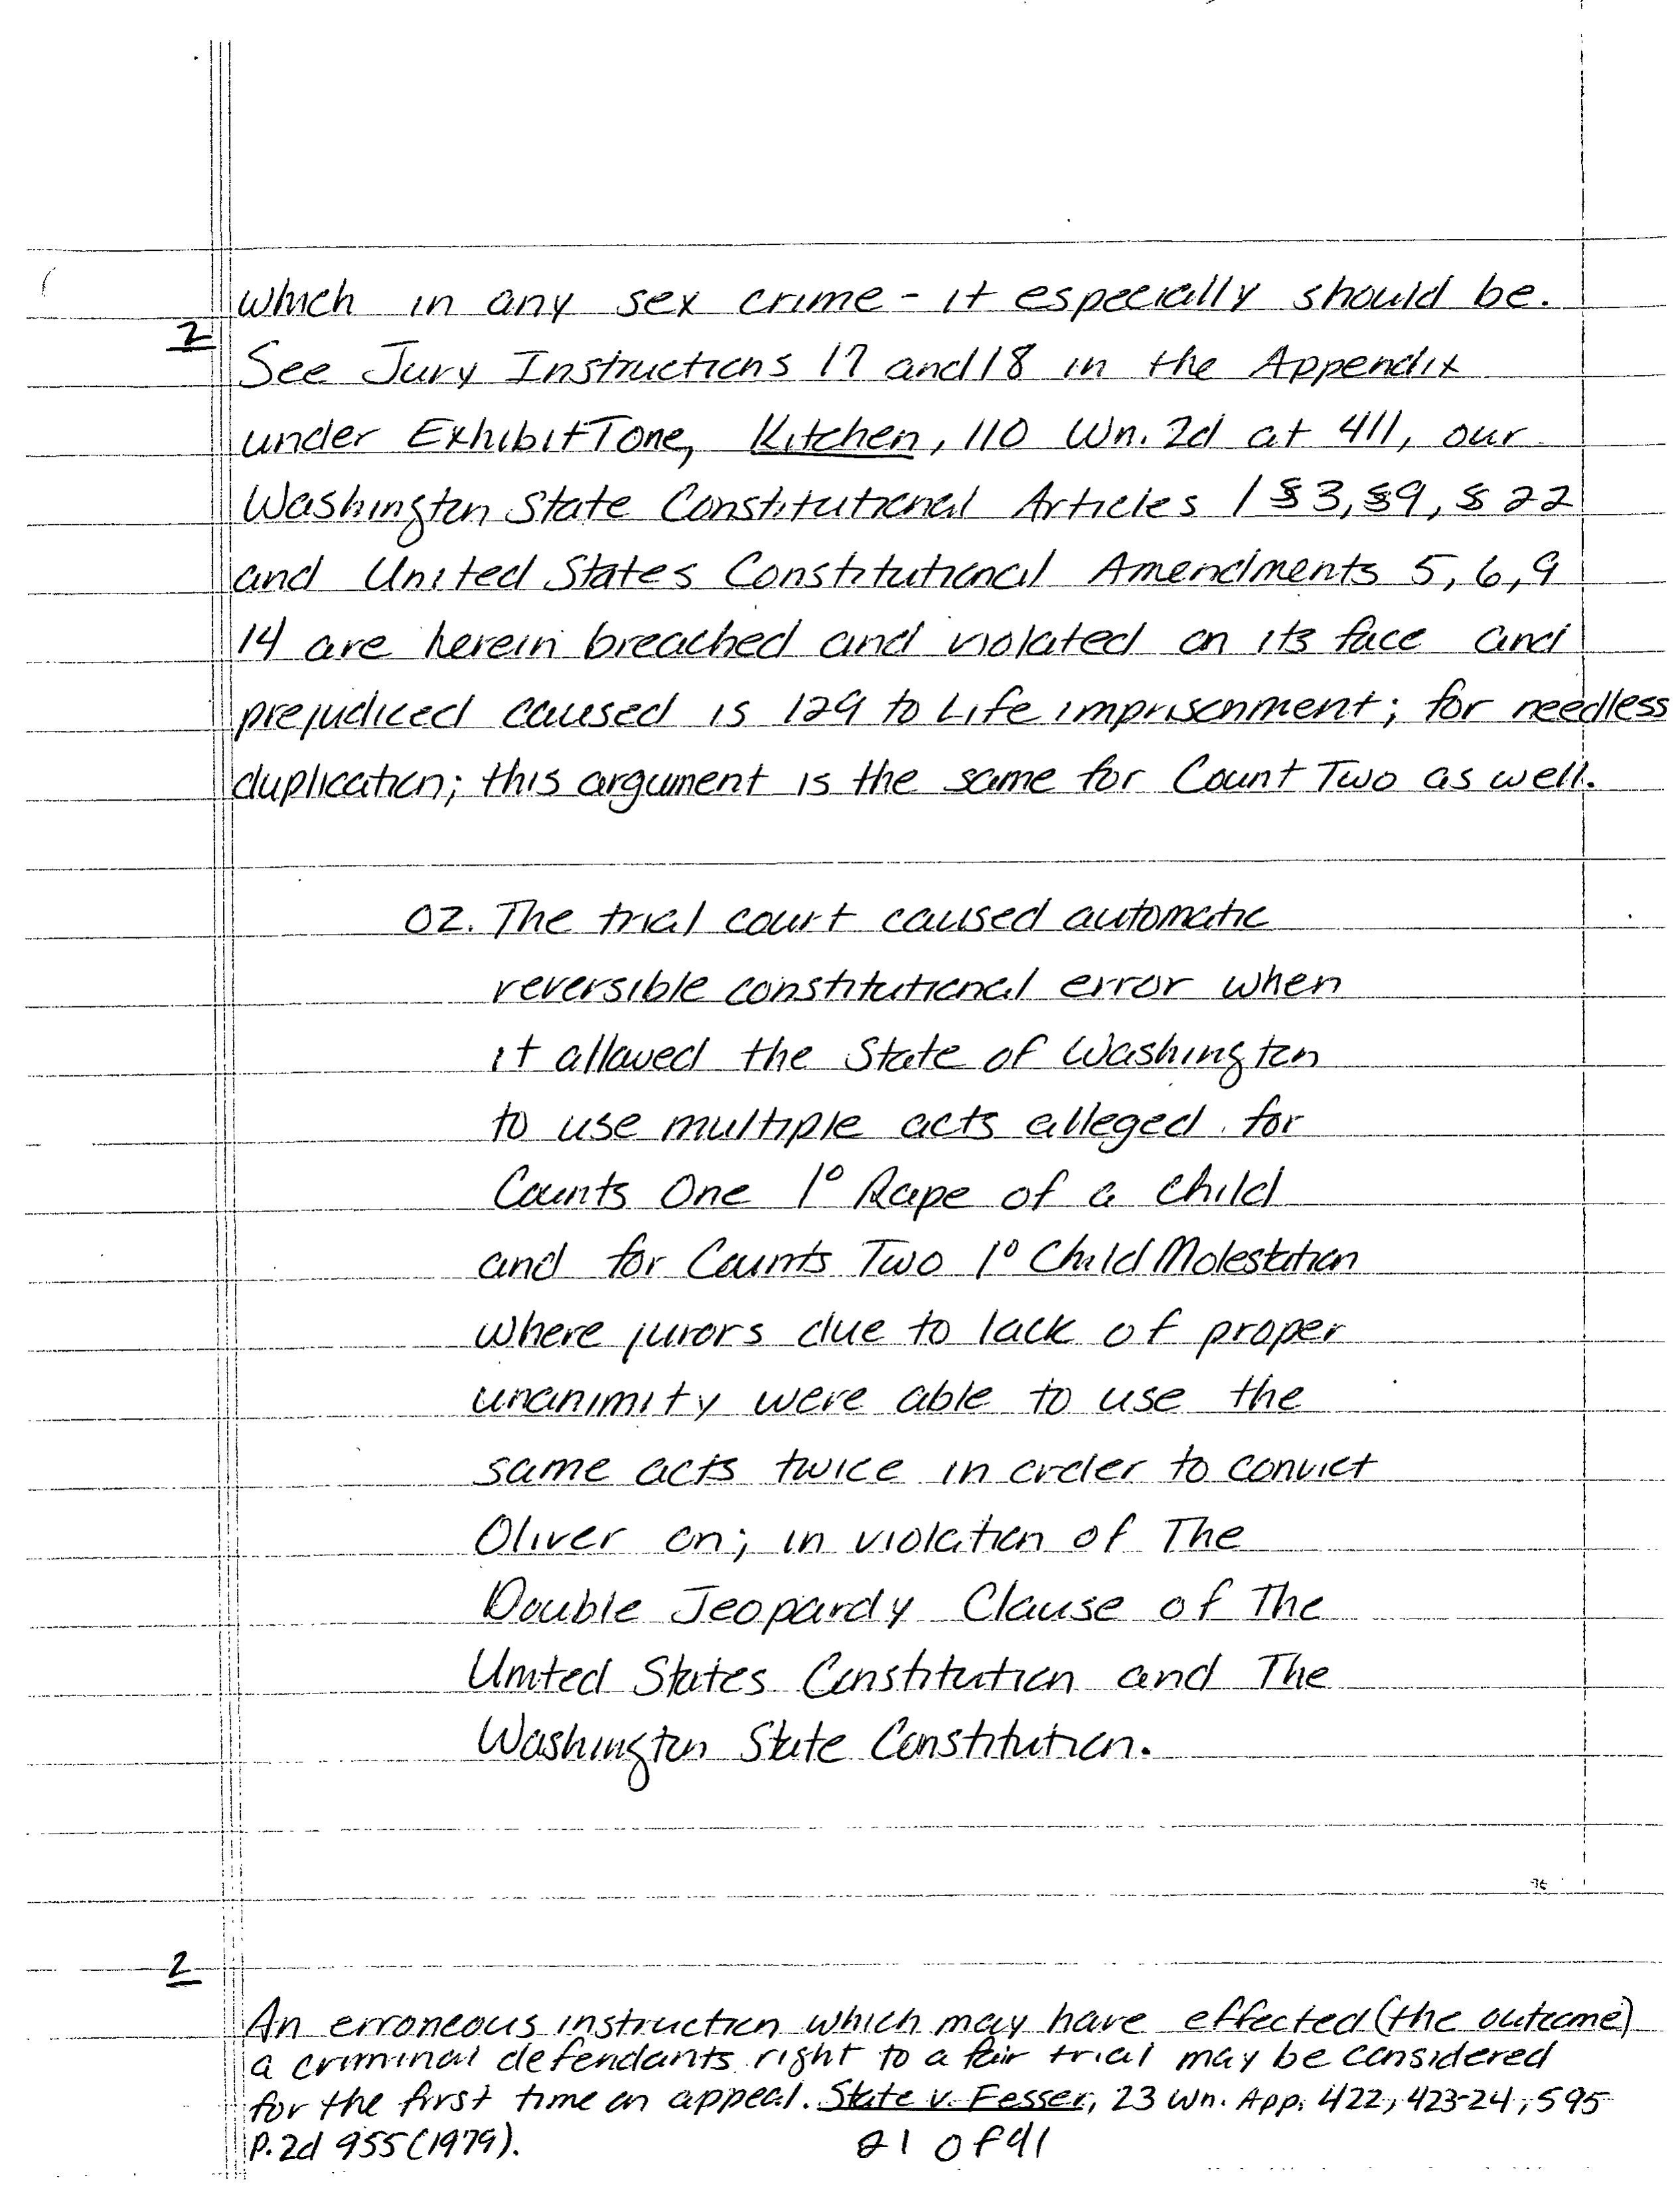 which in any sex crime - it especially should be.
2
See Jury Instructions 17 and 18 in the Appendix
under Exhibit Tone, Kitchen, 110 Wn. 2d at 411, our
Washington State Constitutional Articles 1 § 3, § 9, § 22
and United States Constitutional Amendments 5, 6, 9
14 are herein breached and violated on its face and
prejudiced caused is 129 to Life imprisonment; for needless
duplication; this argument is the same for Count Two as well.
02. The trial court caused automatic
reversible constitutional error when
it allowed the State of Washington
to use multiple acts alleged for
Counts One 1° Rape of a Child
and for Counts Two 1° Child Molestation
where jurors due to lack of proper
unanimity were able to use the
same acts twice in order to convict
Oliver on; in violation of The
Double Jeopardy Clause of The
United States Constitution and The
Washington State Constitution.
2
An erroneous instruction which may have effected (the outcome)
a criminal defendants right to a fair trial may be considered
for the first time on appeal. State v. Fesser, 23 Wn. App. 422, 423-24, 595
P. 2d 955 (1979).
21 of 41